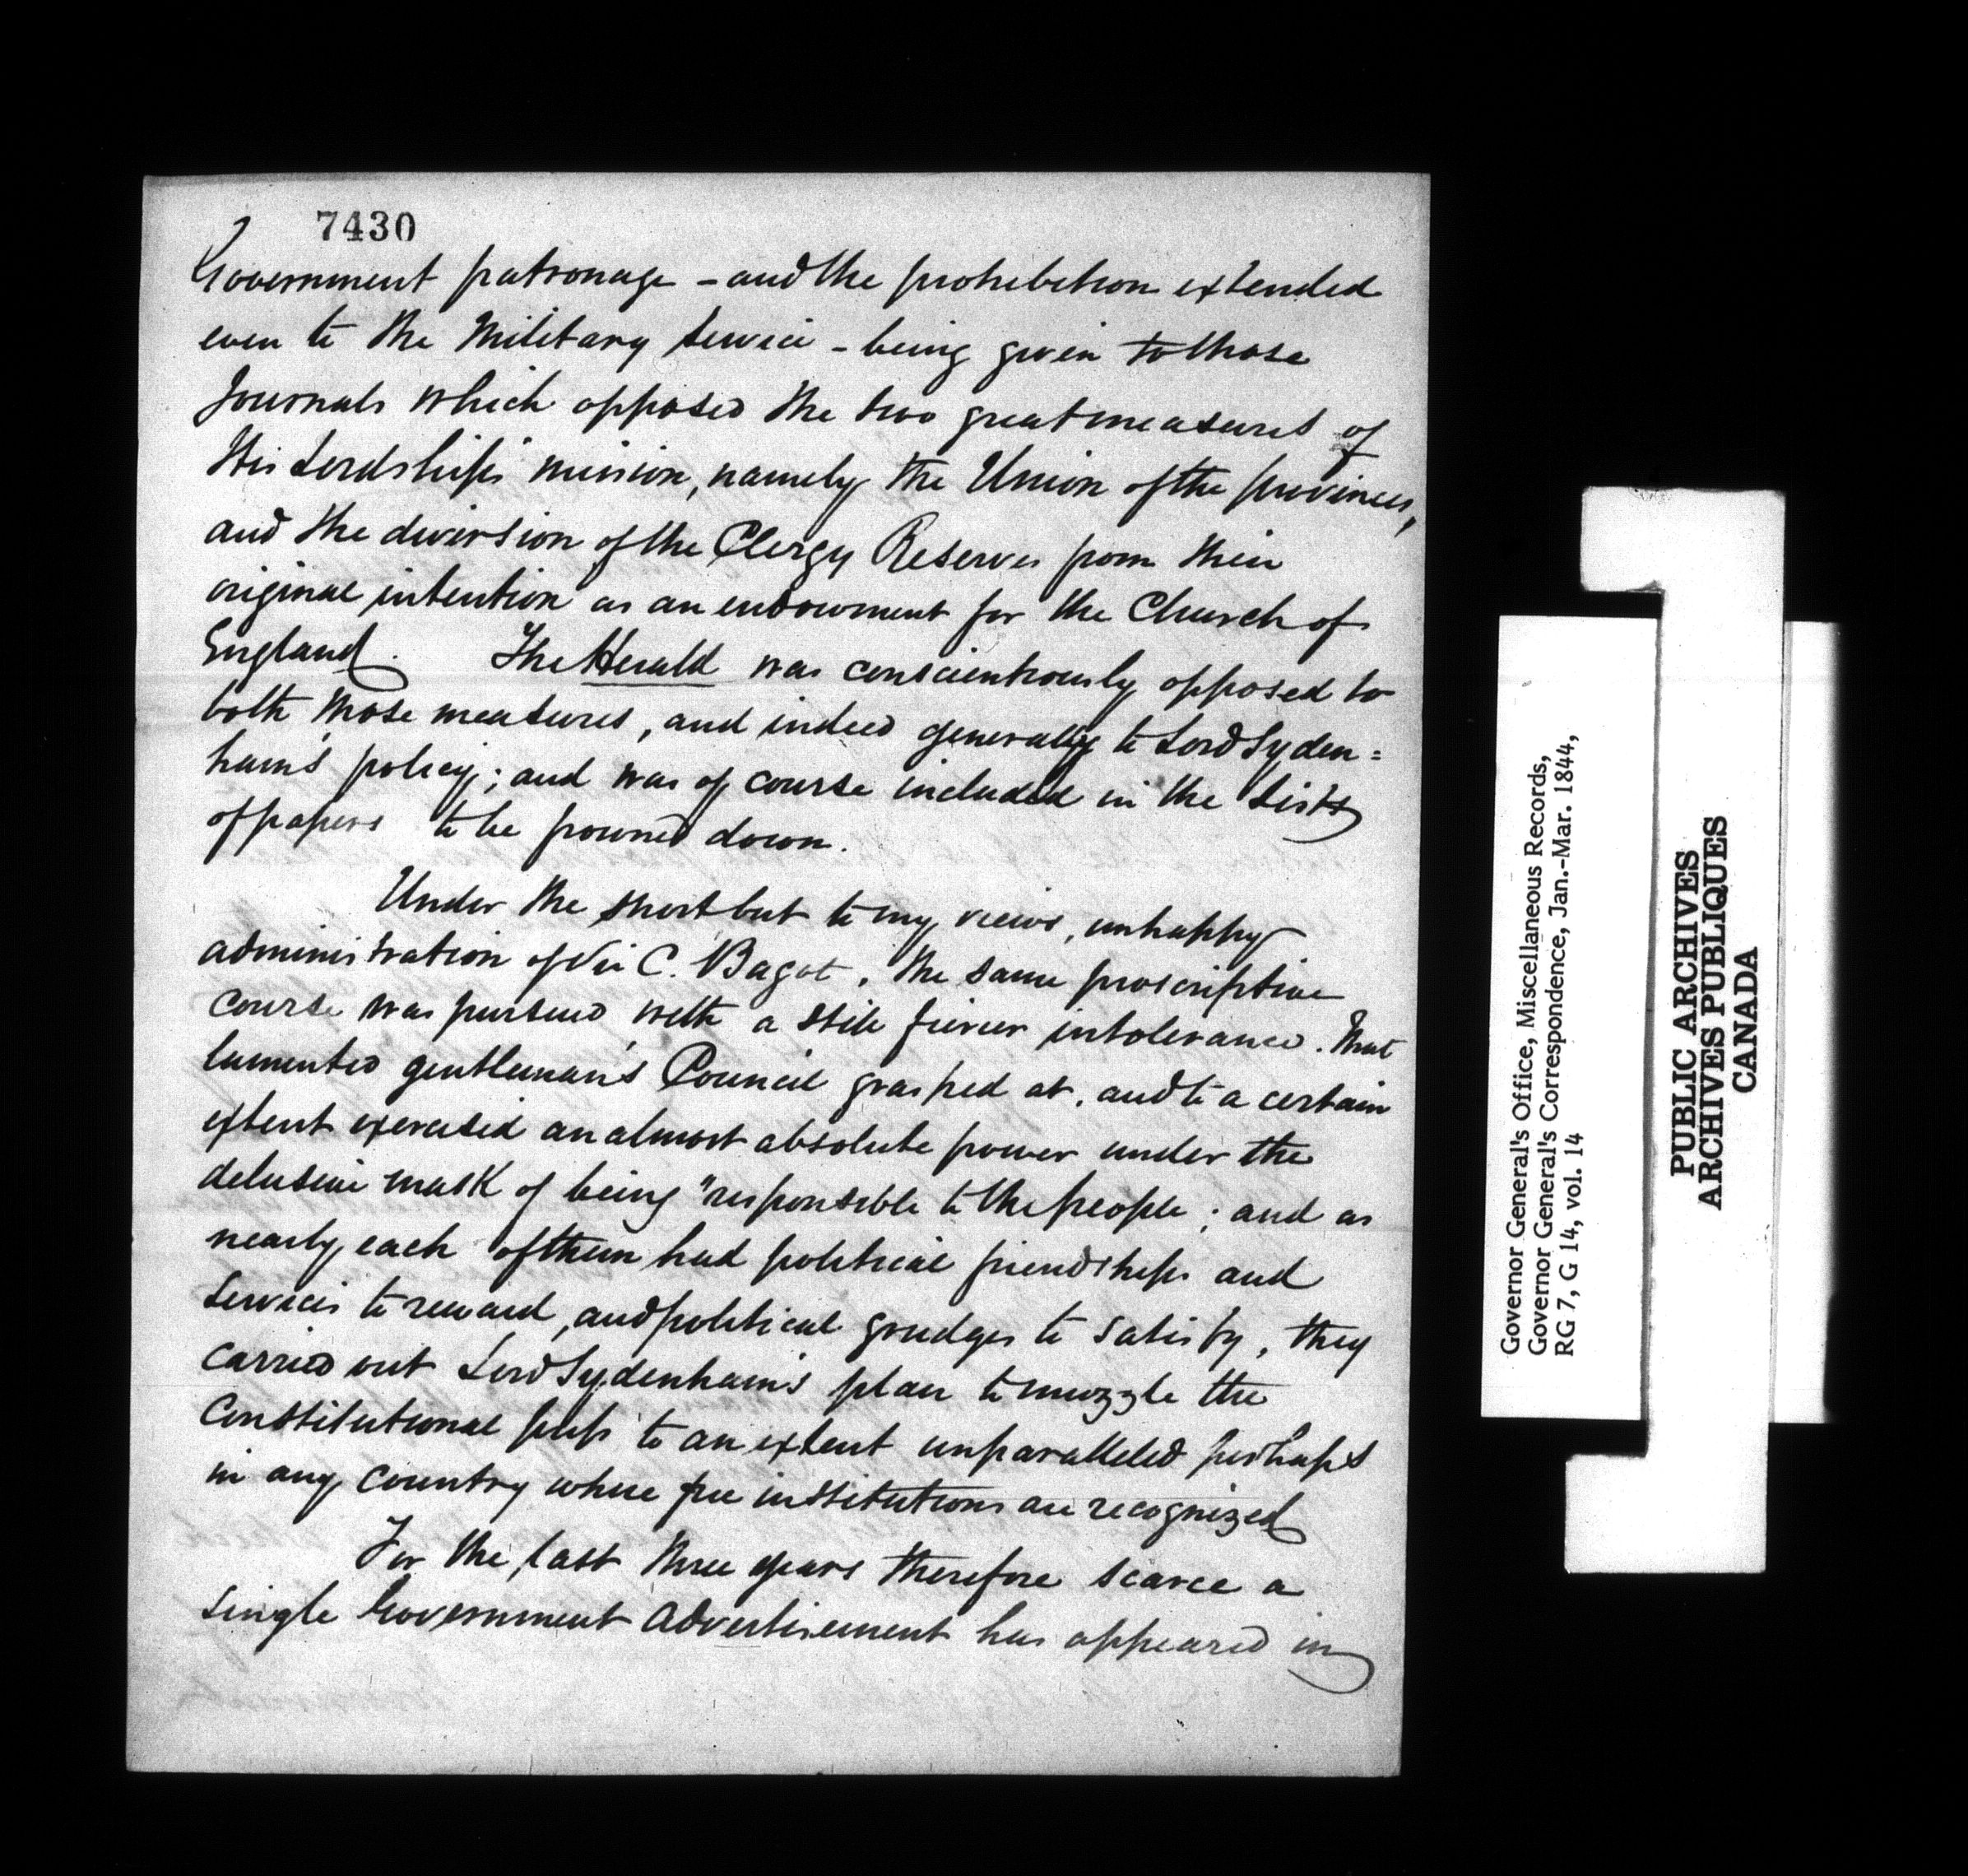 7430
Government patronage - and the prohibition extended
even to the Military Service - being given to those
Journals which opposed the two great measures of
His Lordship's mission, namely the Union of the provinces,
and the diversion of the Clergy Reserves from their
original intention as an endowment for the Church of
England. The Herald was conscientiously opposed to
both those measures, and indeed generally to Lord Syden=
ham's policy; and was of course included in the Lists
of papers to be frowned down.
Under the short but to my views, unhappy
administration of Sir C. Bagot, the same proscriptive
course was pursued with a still fiercer intolerance. That
lamented gentleman's Council grasped at, and to a certain
extent exercised an almost absolute power under the
delusive mask of being "responsible to the people; and as
nearly each of them had political friendships and
Services to reward, and political grudges to satisfy, they
carried out Lord Sydenham's plan to muzzle the
Constitutional press to an extent unparalleled perhaps
in any country where free institutions are recognized
For the last three years therefore scarce a
single Government advertisement has appeared in
Governor General's Office, Miscellaneous Records,
Governor General's Correspondence, Jan.-Mar. 1844,
RG 7, G 14, vol. 14
PUBLIC ARCHIVES
ARCHIVES PUBLIQUES
CANADA